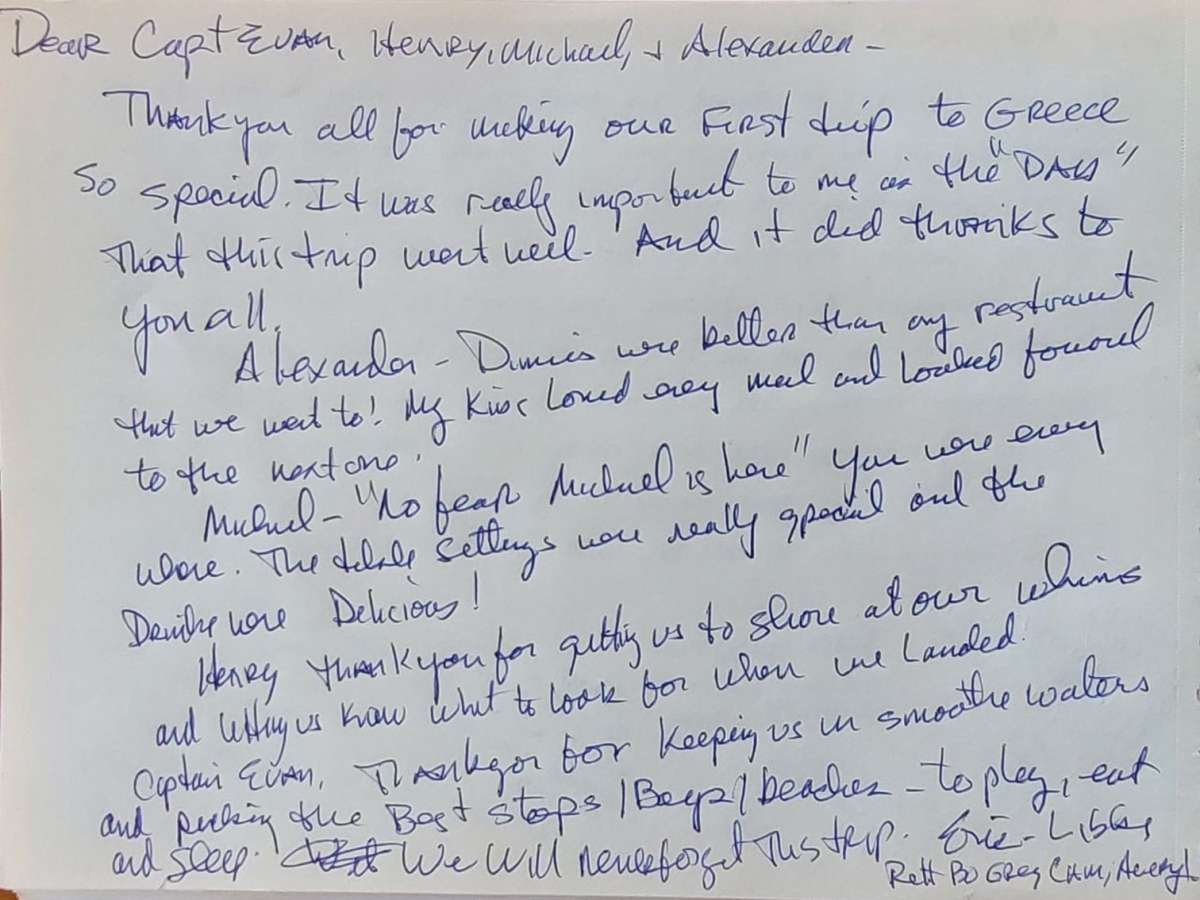 Dear Capt Evan, Henry, Michael, + Alexander -
Thank you all for making our First trip to Greece
So special. It was really important to me as the "DAD"
That this trip went well. And it did thanks to
you all.
Alexander - Dinners were better than any restraunt
that we went to! My Kids Loved every meal and Looked forward
to the next one.
Michael - "No fear Michael is here" You were every
where. The table settings were really special and the
Drinks were Delicious!
Henry thank you for getting us to shore at our whims
and letting us know what to look for when we Landed.
Captain Evan, Thank you for keeping us in smoothe waters
and picking the Best stops / Bays / beaches - to play, eat
and sleep. We will never forget This trip. Eric - Libby
Rett Bo Greg Cam, Avery